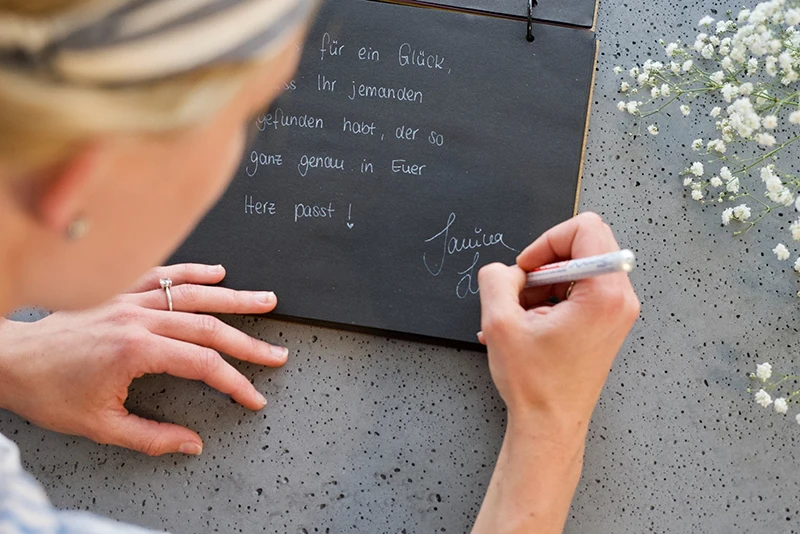 für ein Glück,
Ihr jemanden
gefunden habt, der so
ganz genau in Euer
Herz passt!
Janina